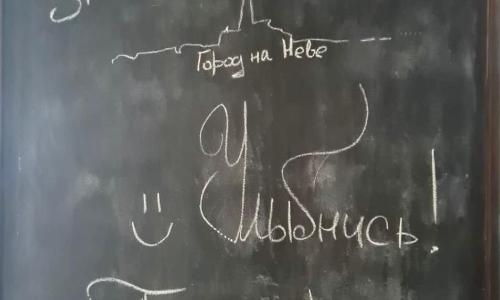 Город на Неве
Улыбнись!